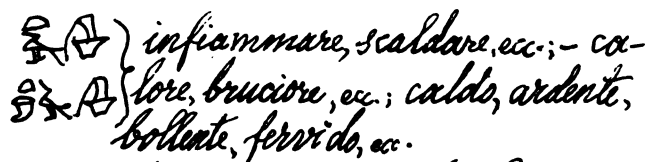 infiammare, scaldare, ecc.; – ca-
lore, bruciore, ecc.; caldo, ardente,
bollente, fervido, ecc.